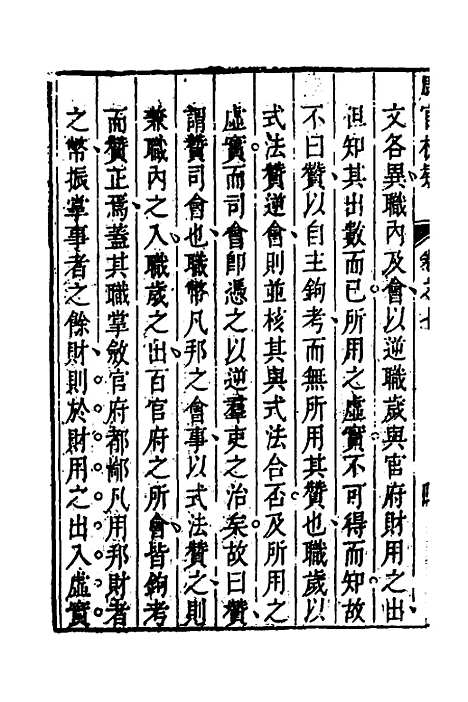 文各異職內及會以逆職歲與官府財用之出
但知其出數而已所用之虛實不可得而知故
不曰贊以自主鉤考而無所用其贊也職歲以
式法贊逆會則並核其與式法合否及所用之
虛實而司會卽憑之以逆羣吏之治矣故曰贊
謂贊司會也職幣凡邦之會事以式法贊之則
兼職內之入職歲之出百官府之所會皆鉤考
而贊正焉蓋其職掌斂官府都鄙凡用邦財者
之幣振掌事者之餘財則於財用之出入虛實